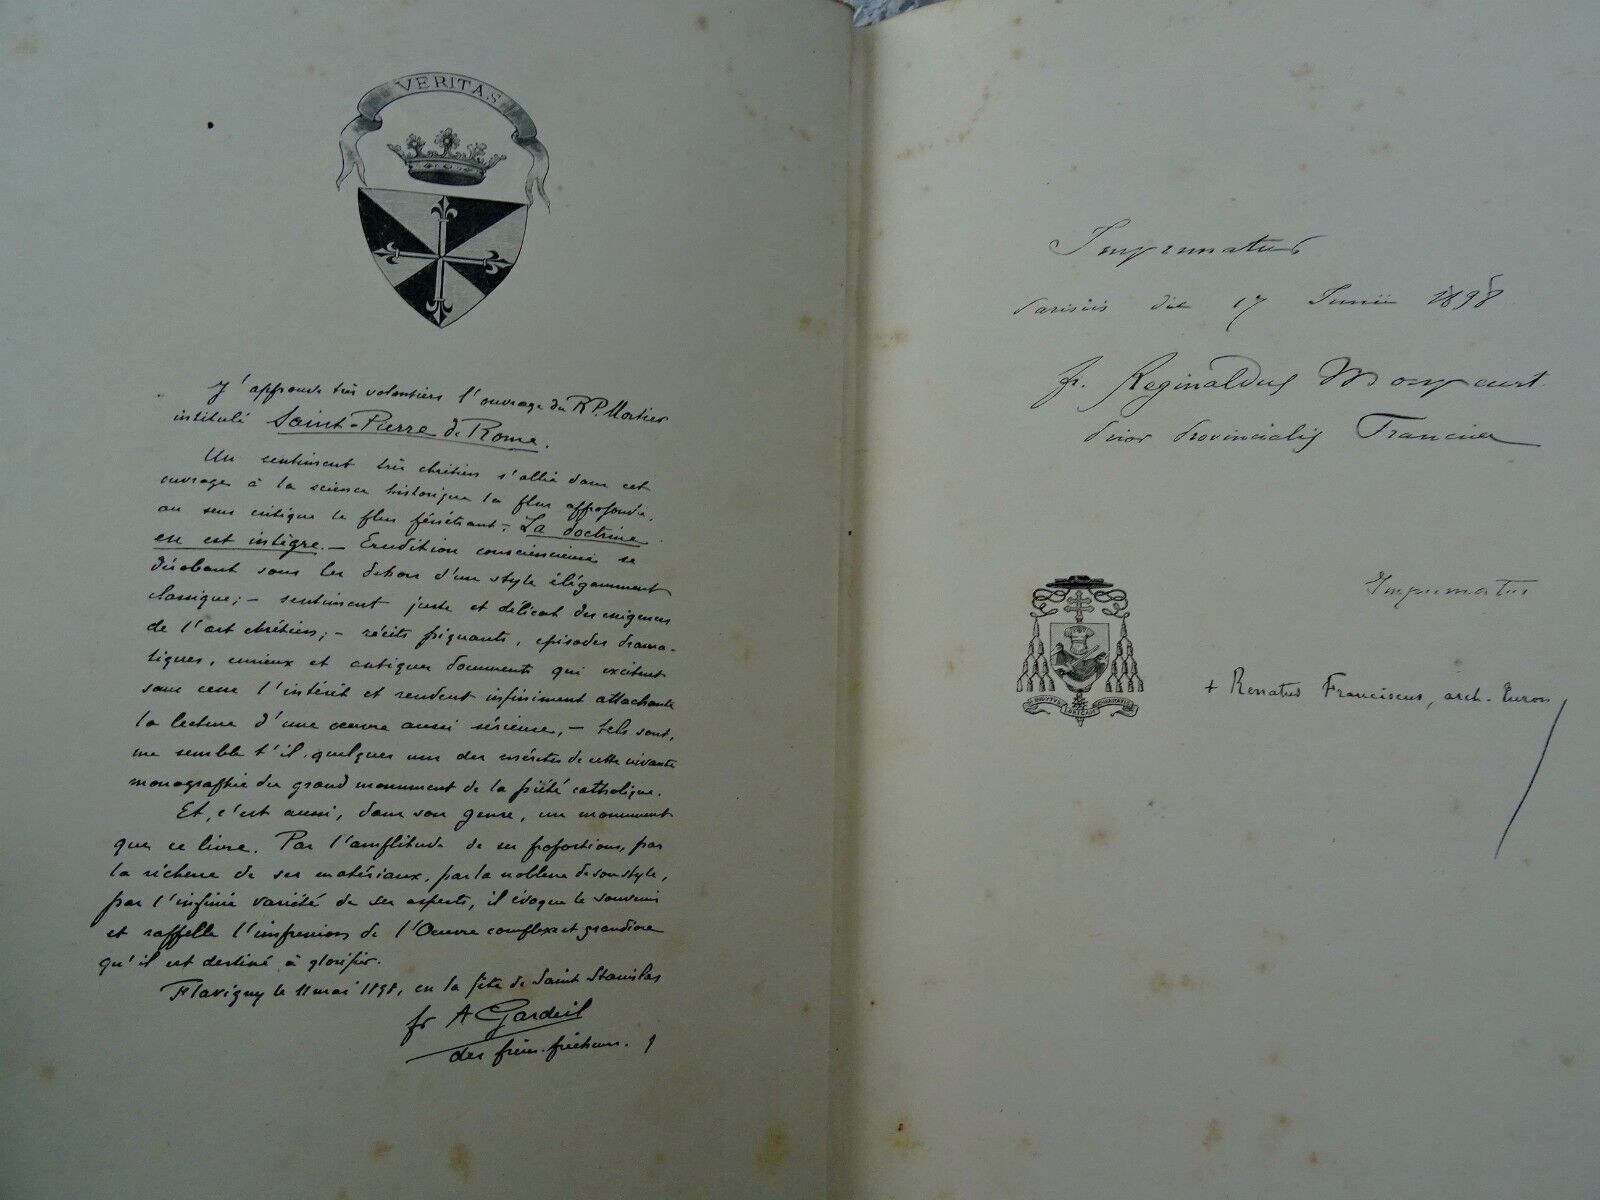 VERITAS
J'approuve très volontiers l'ouvrage du R.P. Mortier
intitulé Saint-Pierre de Rome.
Un sentiment très chrétien s'allie dans cet
ouvrage à la science historique la plus approfondie,
au sens critique le plus pénétrant. La doctrine
en est intègre. — Erudition consciencieuse se
dérobant sous les dehors d'un style élégamment
classique; — sentiment juste et délicat des exigences
de l'art chrétien; — récits piquants, épisodes drama-
tiques, curieux et antiques documents qui excitent
sans cesse l'intérêt et rendent infiniment attachante
la lecture d'une œuvre aussi sérieuse, — tels sont,
me semble t'il, quelques uns des mérites de cette vivante
monographie du grand monument de la piété catholique.
Et, c'est aussi, dans son genre, un monument
que ce livre. Par l'amplitude de ses proportions, par
la richesse de ses matériaux, par la noblesse de son style,
par l'infinie variété de ses aspects, il évoque le souvenir
et rappelle l'impression de l'Oeuvre complexe et grandiose
qu'il est destiné à glorifier.
Flavigny le 11 mai 1898, en la fête de Saint Stanislas
fr A Gardeil
des frères-prêcheurs.
Imprimatur
Parisiis die 17 Junii 1898
fr. Reginaldus Monpeurt
Prior Provincialis Franciae
Imprimatur
+ Renatus Franciscus, arch. Turon